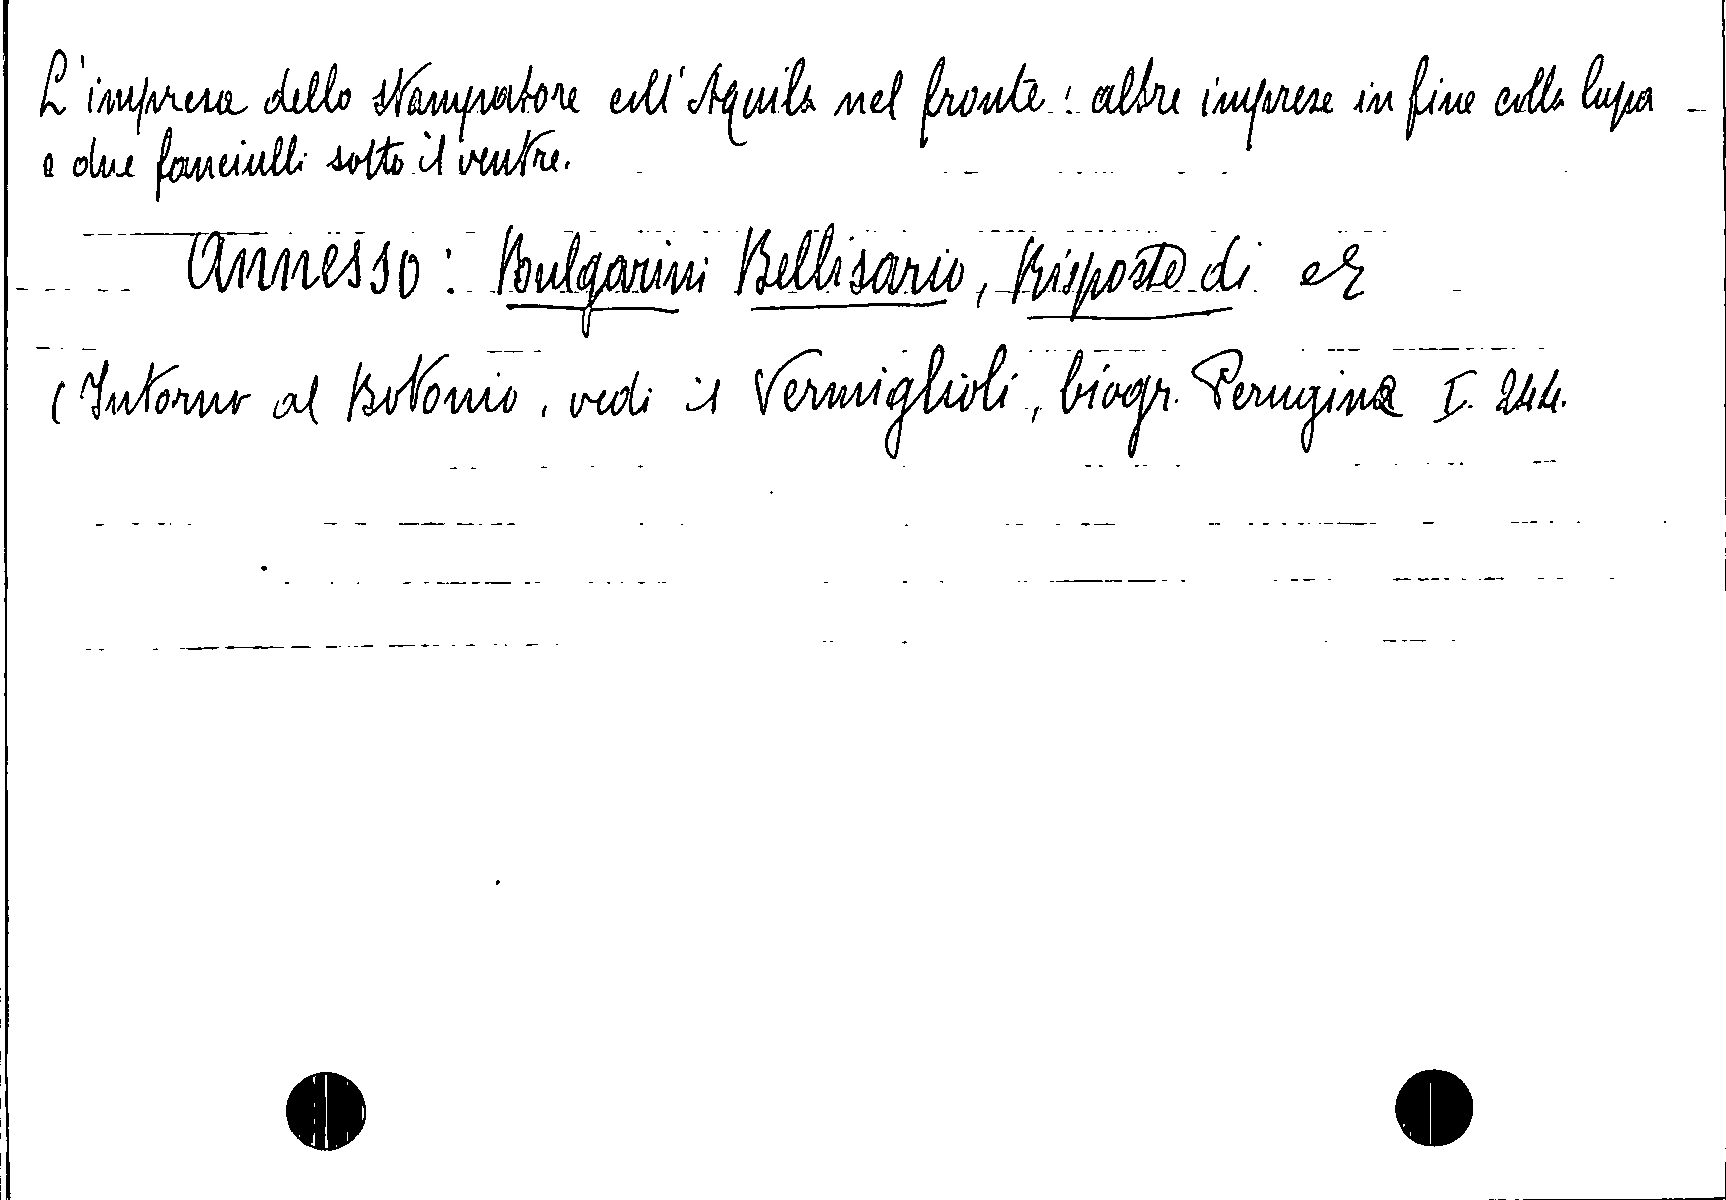 L'impresa dello stampatore coll'Aquila nel fronte: altre imprese in fine colla lupa
e due fanciulli sotto il ventre.
Annesso: Bulgarini Bellisario, Risposte di
(Intorno al Botonio, vedi il Vermiglioli, biogr. Perugina I. 244.